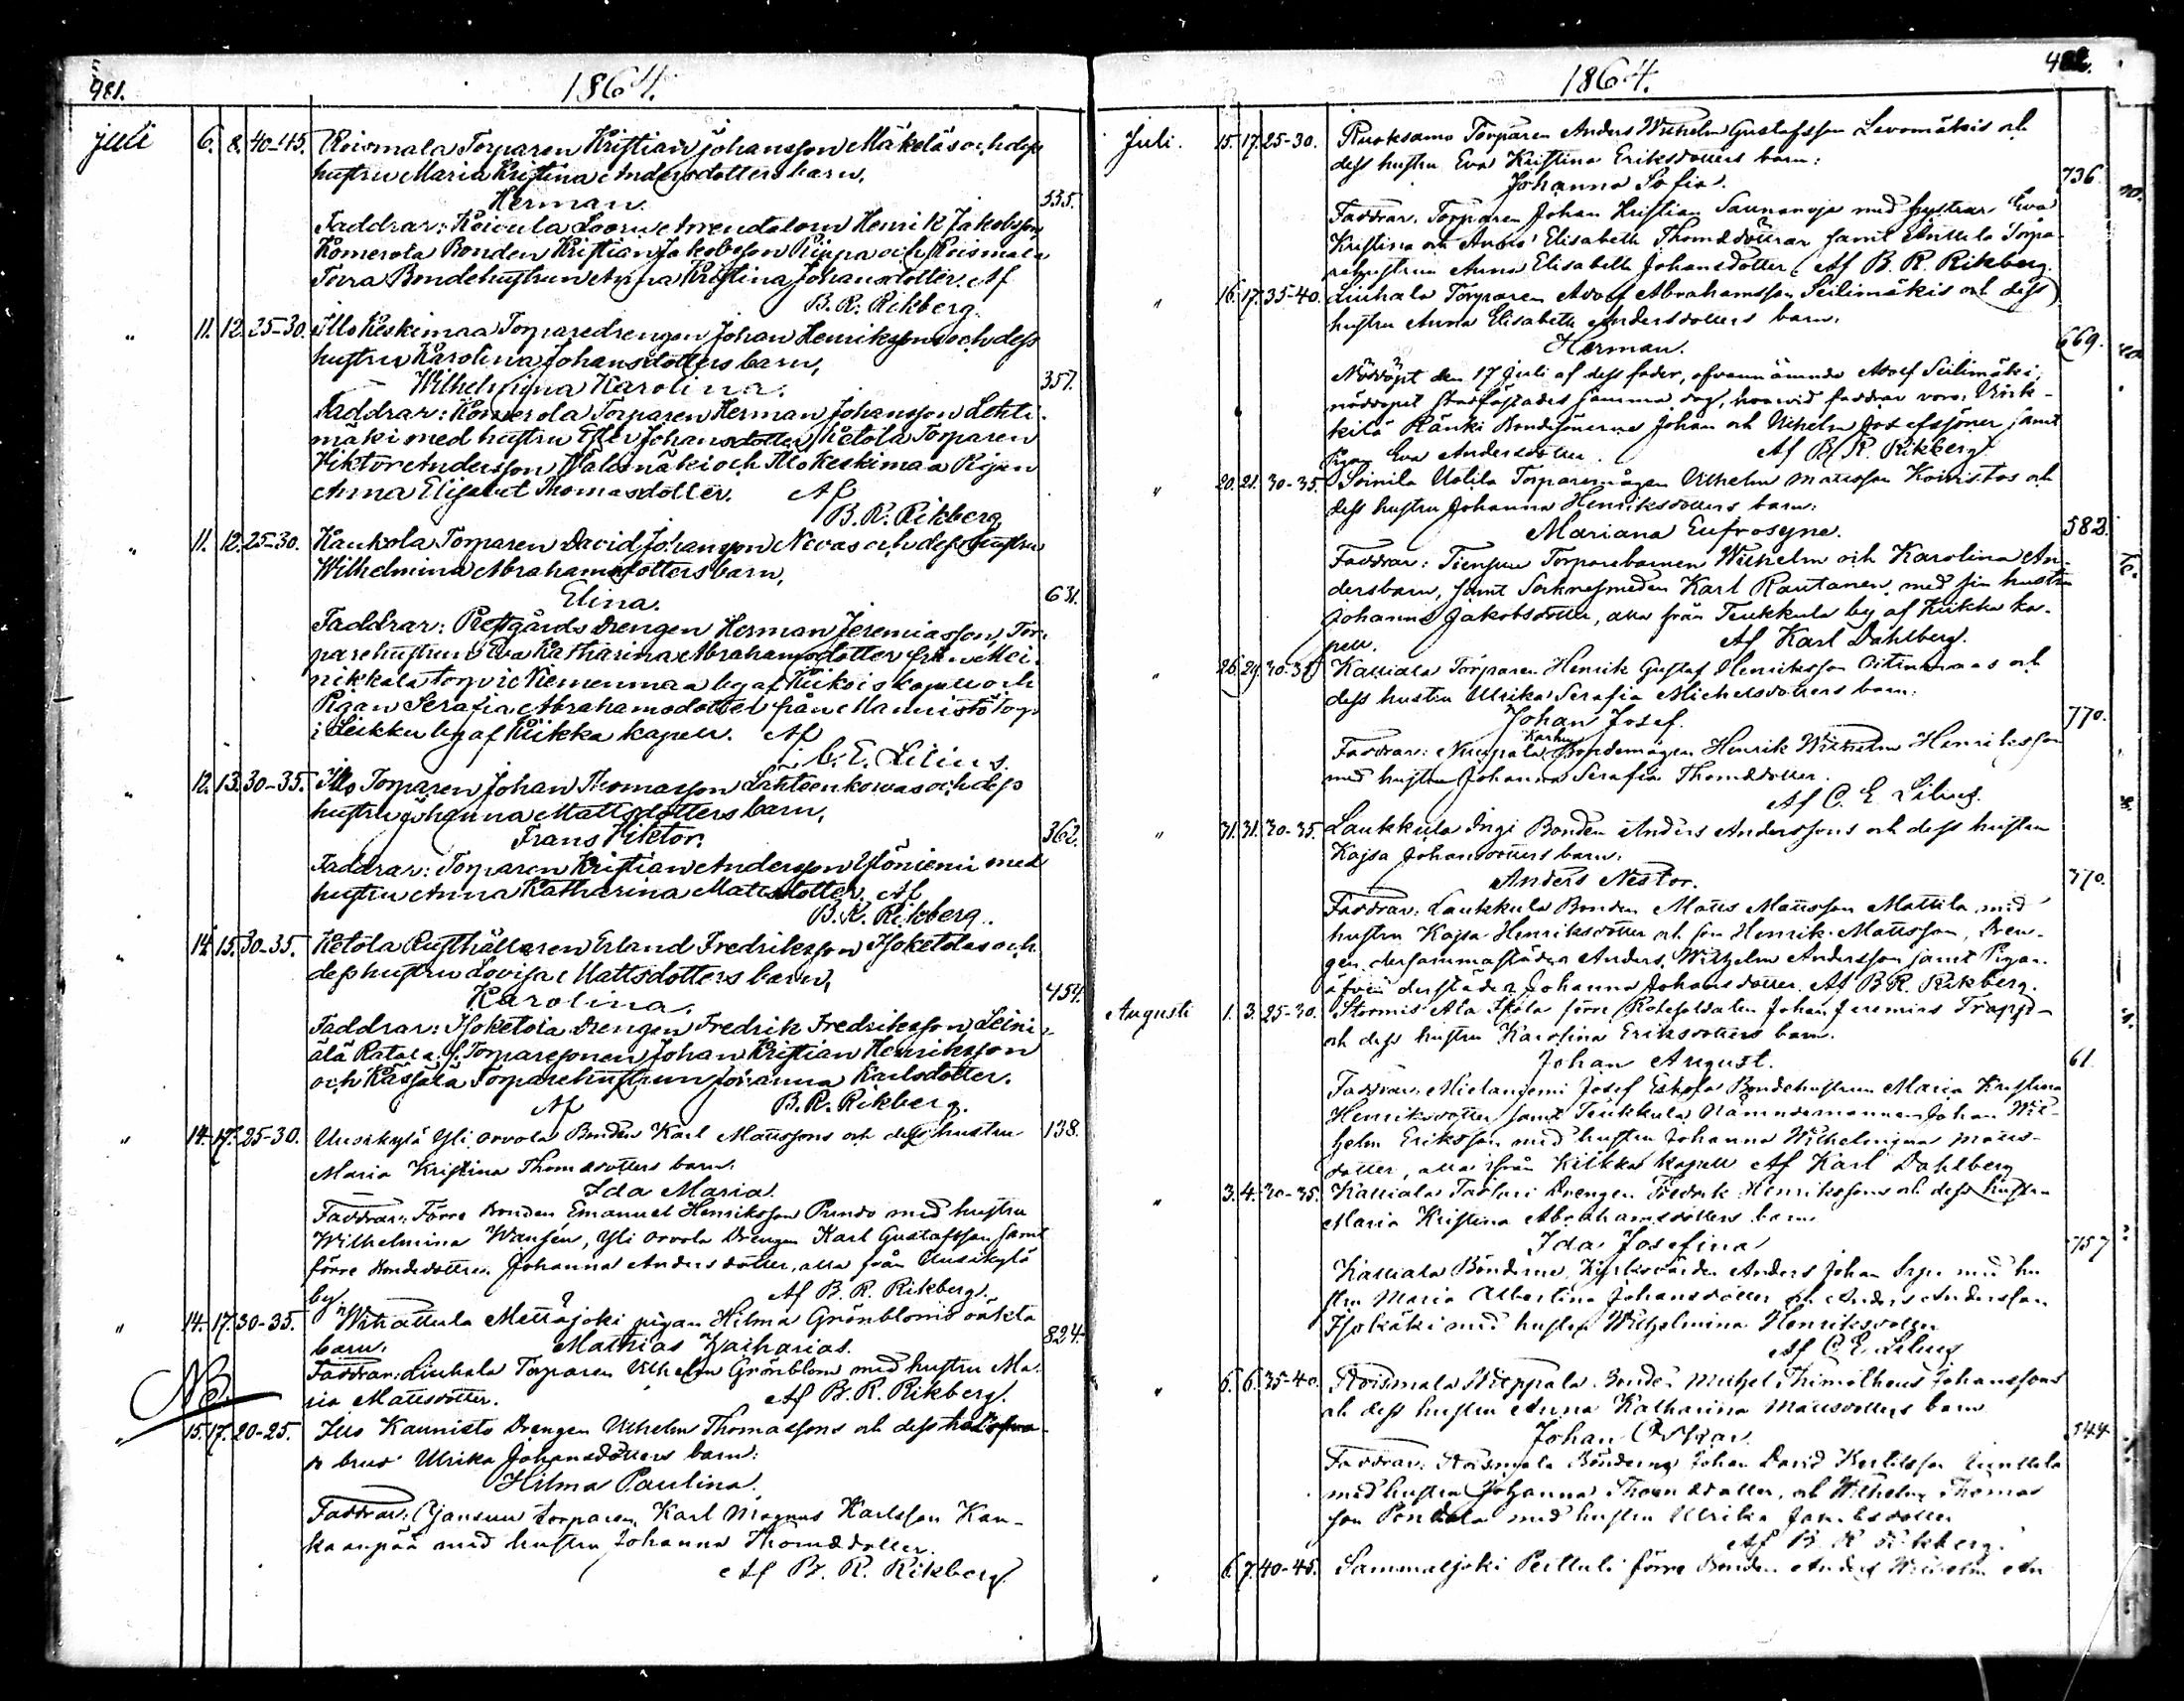 481.
1864.
Juli 6. 8. 40-45. Roismala Torparen Kristian Johansson Mäkeläs och dess
hustru Maria Kristina Andersdotters barn,
Herman. 555.
Faddrar: Koivula Arrendatorn Henrik Jakobsson,
Komerola Bonden Kristian Jakobsson Piippa och Roismala
Bondehustrun Anna Kristina Johansdotter. Af
B. R. Rikberg.
" 11. 12. 25-30. Illo Keskimaa Torparedrengen Johan Henrikssons och dess
hustru Karolina Johansdotters barn,
Wilhelmina Karolina. 357.
Faddrar: Komerola Torparen Herman Johansson Lehti-
mäki med hustru Ester Johansdotter, Ketola Torparen
Viktor Andersson Walsmäki och Illo Keskimaa Pigan
Anna Elisabet Thomasdotter. Af
B. R. Rikberg
" 11. 12. 25-30. Kaukola Torparen David Johansson Nevas och dess hustru
Wilhelmina Abrahamsdotters barn,
Elina. 631.
Faddrar: Prestgårds Drengen Herman Jeremiasson, Tor-
parehustrun Eva Katharina Abrahamsdotter från Mei-
nikkala torp i Niemenmaa by af Kiikois kapell och
Pigan Serafia Abrahamsdotter från Mannistö Torp
i Leikku by af Kiikka kapell. Af
C. E. Lilius.
" 12. 13. 30-35. Illo Torparen Johan Thomasson Lähteenkorvas och dess
hustru Johanna Mattsdotters barn,
Frans Viktor. 362.
Faddrar: Torparen Kristian Andersson Ylöniemi med
hustru Anna Katharina Mattsdotter. Af
B. R. Rikberg.
" 14. 15. 30-35. Ketola Rusthållaren Erland Fredriksson Isoketolas och
dess hustru Lovisa Mattsdotters barn,
Karolina. 454.
Faddrar: Isoketola Drengen Fredrik Fredriksson, Leini-
älä Ratala f. Torparesonen Johan Kristian Henriksson
och Kässälä Torparehustrun Johanna Karlsdotter.
Af B. R. Rikberg.
" 14. 17. 25-30. Uusikylä Yli Orvola Bonden Karl Mattssons och dess hustru 138.
Maria Kristina Thomædotters barn.
Ida Maria.
Faddrar: Förre Bonden Emanuel Henriksson Pundo med hustru
Wilhelmina Wansén, Yli Orvola Drengen Karl Gustafsson samt
förre Bondedottren Johanna Andersdotter, alla från Uusikylä
by. Af B. R. Rikberg.
" 14. 17. 30-35. Wihattula Mettäjoki pigan Hilma Grönbloms oäkta
barn. Mathias Zacharias. 824.
Faddrar: Liuhala Torparen Vilhelm Grönblom med hustru Ma-
ria Mattsdotter. Af B. R. Rikberg.
NB.
" 15. 17. 20-25. Illo Kaunisto Drengen Vilhelm Thomassons och dess
brud Ulrika Johansdotters barn:
Hilma Paulina.
Faddrar: Ojansuu torparen Karl Magnus Karlsson Kan-
kaanpää med hustru Johanna Thomædotter.
Af B. R. Rikberg.
1864.
Juli. 15. 17. 25-30. Ruoksamo Torparen Anders Wilhelm Gustafsson Levomäkis och
dess hustru Eva Kristina Eriksdotters barn:
Johanna Sofia. 736.
Faddrar: Torparen Johan Kristian Saunanoja med hustrun Eva
Kristina och Anna Elisabeth Thomædöttrar samt Anttila Torpa-
rehustrun Anna Elisabeth Johansdotter. Af B. R. Rikberg.
" 16. 17. 35-40. Liuhala Torparen Adolf Abrahamsson Seilimäkis och dess
hustru Anna Elisabeth Andersdotters barn.
Herman. 669.
Nöddöpt den 17 Juli af dess fader, ofvannämnde Adolf Seilimäki,
nöddopet stadfästades samma dag, hvarvid faddrar voro: Vink-
kilä Ränki Bondesönerne Johan och Vilhelm Josefssöner samt
Pigan Eva Andersdotter. Af B. R. Rikberg.
" 20. 21. 30-35. Soinila Uotila Torparemågen Vilhelm Mattsson Koivistos och
dess hustru Johanna Henriksdotters barn:
Mariana Eufrosyne. 582.
Faddrar: Tiensuu Torparebarnen Wilhelm och Karolina An-
dersbarn, samt Socknesmeden Karl Rautanen, med sin hustru
Johanna Jakobsdotter, alla från Teukkula by af Kiikka ka-
pell. Af Karl Dahlberg.
" 26. 29. 30-35. Kalliala Torparen Henrik Gustaf Henriksson Aitinmaas och
dess hustru Ulrika Serafia Michelsdotters barn:
Johan Josef. 770.
Karhu
Faddrar: Nuupala Bondemågen Henrik Wilhelm Henriksson
med hustru Johanna Serafia Thomædotter.
Af C. E. Lilius.
" 31. 31. 30-35. Laukkula Ingi Bonden Anders Anderssons och dess hustru
Kajsa Johansdotters barn.
Anders Nestor. 370.
Faddrar: Laukkula Bonden Matts Mattsson Mattila, med
hustru Kajsa Henriksdotter och son Henrik Mattsson, Dren-
gen dersammastädes Anders Wilhelm Andersson samt Pigan
äfven derstädes Johanna Johansdotter. Af B. R. Rikberg.
Augusti 1. 3. 25-30. Stormis Ala förre Rotesoldaten Johan Jeremias Trapp
och dess hustru Karolina Eriksdotters barn.
Johan August. 61.
Faddrar: Josef Eskola Bondehustrun Maria Kristina
Henriksdotter samt Teukkula Nämndemannen Johan Wil-
helm Eriksson med hustru Johanna Wilhelmina Matts-
dotter, alla ifrån Kiikka kapell. Af Karl Dahlberg
" 3. 4. 30-35. Kalliala Drengen Fredrik Henrikssons och dess hustru
Maria Kristina Abrahamsdotters barn
Ida Josefina 757
Kalliala Bönderne, Kyrkovärden Anders Johan med hu-
stru Maria Albertina Johansdotter och Anders Andersson
Isokäki med hustru Wilhelmina Henriksdotter
Af C. E. Lilius
" 5. 6. 35-40. Roismala Bonden Michel Thimotheus Johanssons
och dess hustru Anna Katharina Mattsdotters barn
Johan Oskar. 544
Faddrar: Roismala Bönderne Johan David
med hustru Johanna Thomædotter, och Wilhelm Thomas-
son med hustru Ulrika Jakobsdotter
Af B. R. Rikberg.
" 6. 7. 40-45. Sammaljoki Peltuli förre Bonden Anders Wilhelm An